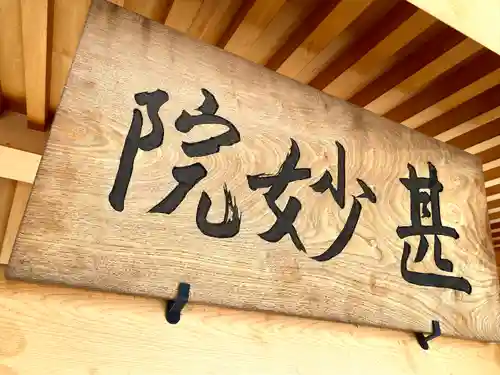 甚妙院